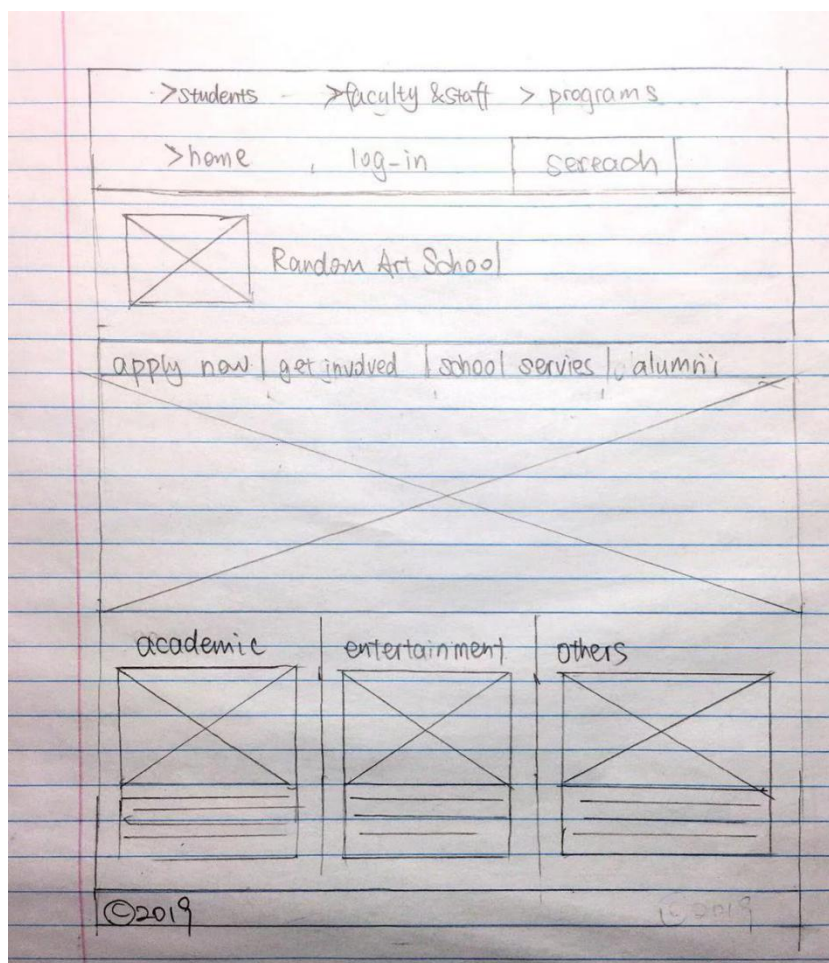 >students >faculty &staff > programs
>home log-in sereach
Random Art School
apply now | get involved | school servies | alumni
academic entertainment others
©2019 ©2019